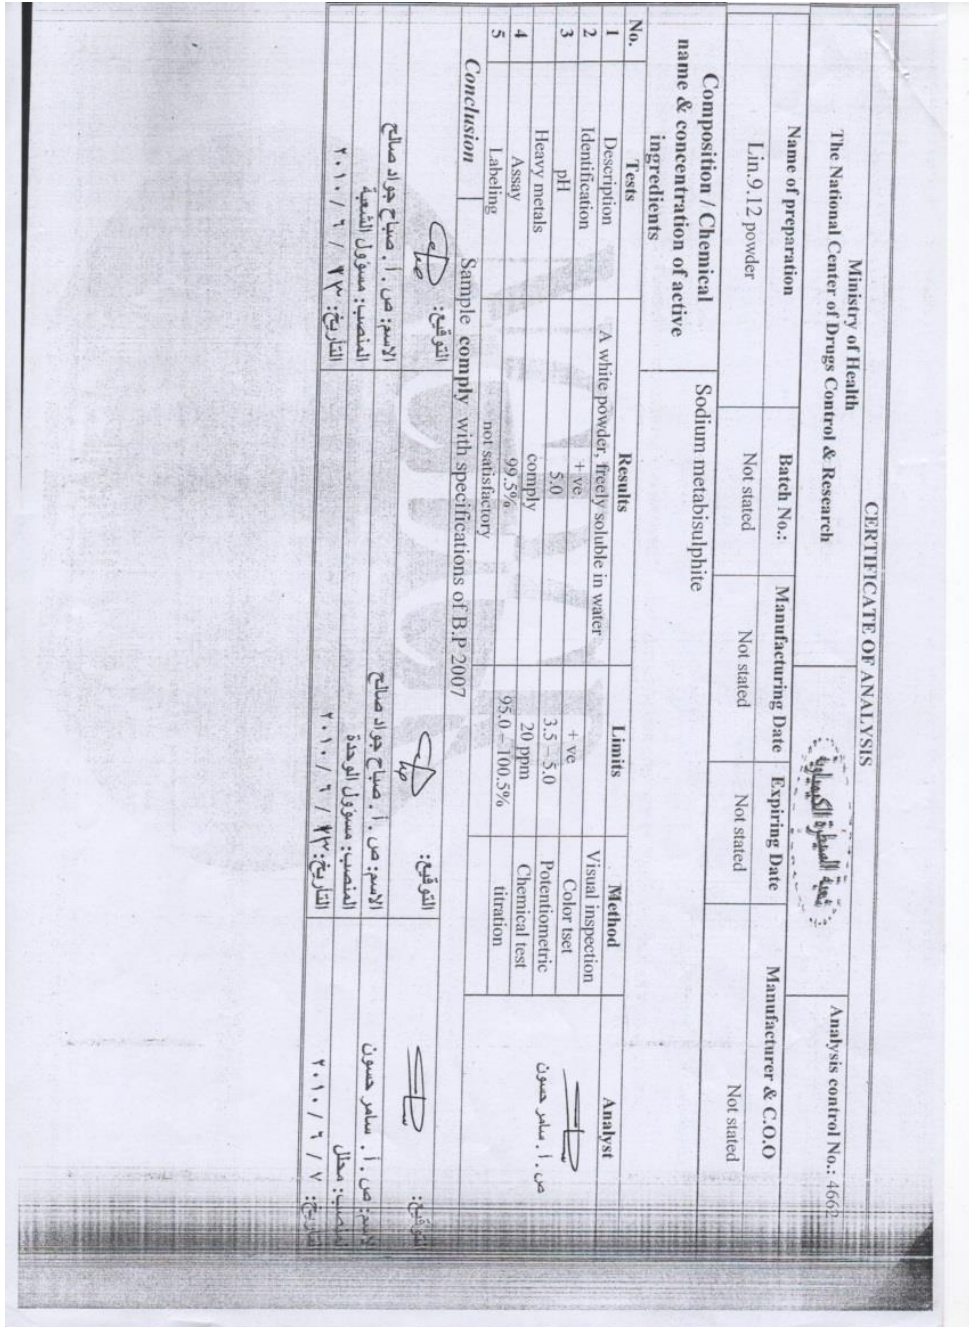 CERTIFICATE OF ANALYSIS
Ministry of Health
The National Center of Drugs Control & Research
شعبة السيطرة الكيمياوية
Analysis control No.: 4662
Name of preparation Batch No.: Manufacturing Date Expiring Date Manufacturer & C.O.O
Lin.9.12 powder Not stated Not stated Not stated Not stated
Composition / Chemical name & concentration of active ingredients Sodium metabisulphite
No. Tests Results Limits Method Analyst
1 Description A white powder, freely soluble in water Visual inspection
2 Identification + ve + ve Color tset
3 pH 5.0 3.5 – 5.0 Potentiometric
4 Heavy metals comply 20 ppm Chemical test
5 Assay 99.5% 95.0 – 100.5% titration
Labeling not satisfactory
ص . أ . سامر حسون
Conclusion Sample comply with specifications of B.P 2007
التوقيع: التوقيع: التوقيع:
الاسم: ص . أ . صباح جواد صالح الاسم: ص . أ . صباح جواد صالح الاسم: ص . أ . سامر حسون
المنصب: مسؤول الشعبة المنصب: مسؤول الوحدة المنصب: محلل
التاريخ: ٢٣ / ٦ / ٢٠١٠ التاريخ: ٢٣ / ٦ / ٢٠١٠ التاريخ: ٧ / ٦ / ٢٠١٠